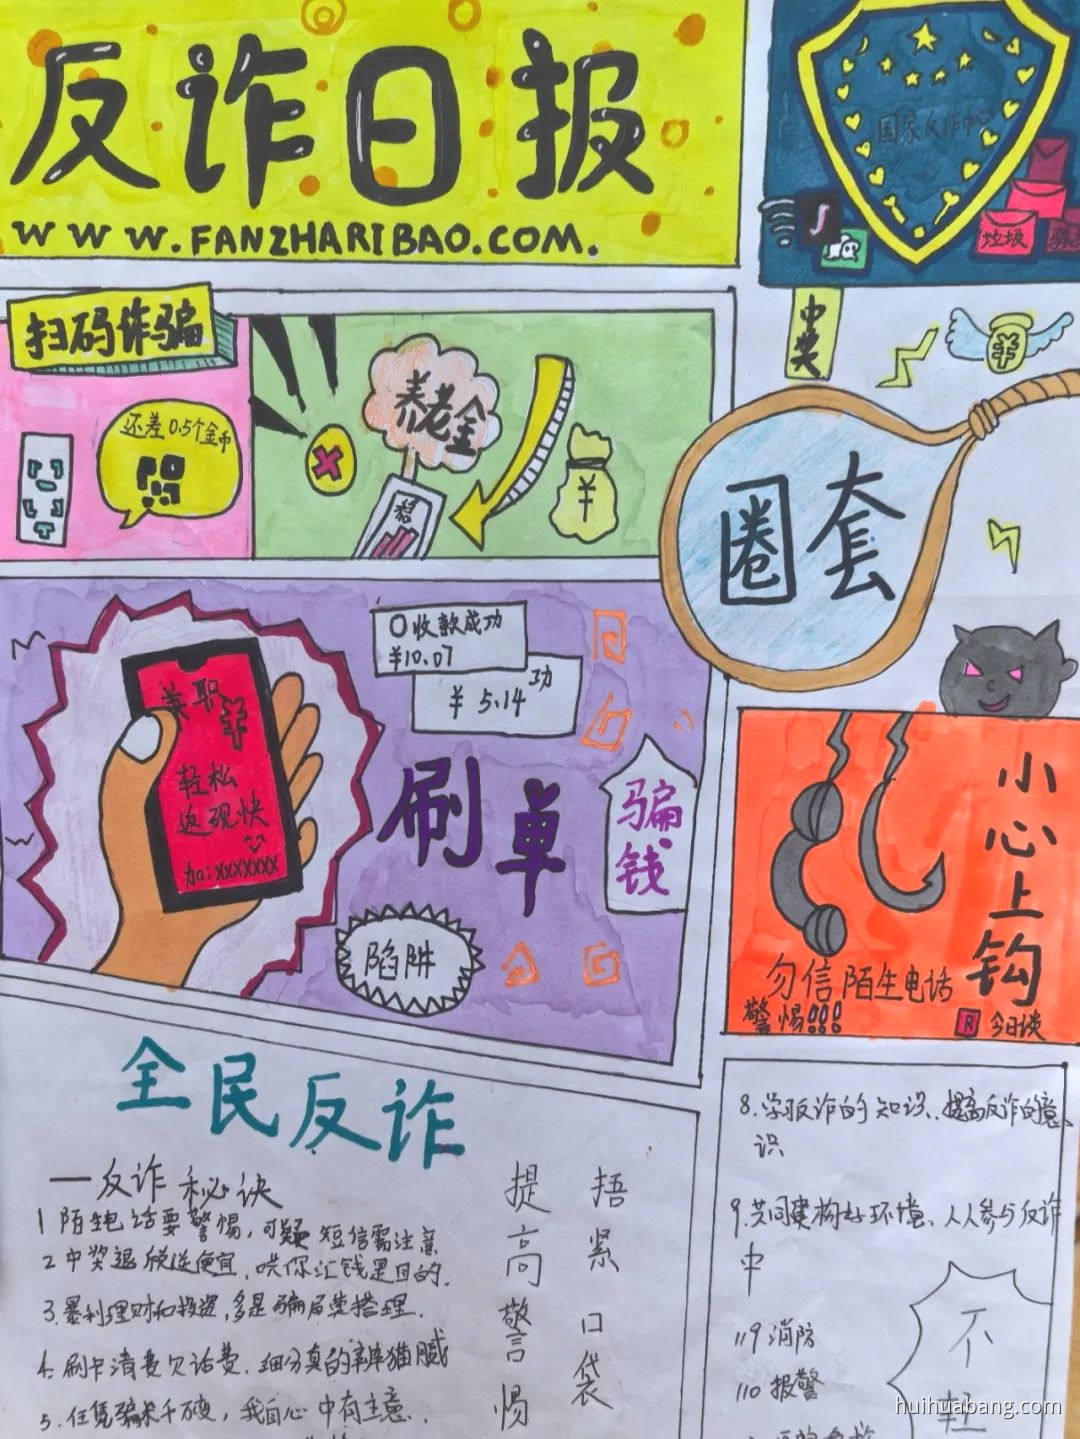 反诈日报
WWW.FANZHARIBAO.COM.
国家反诈中心
垃圾
扫码诈骗
还差0.5个金币
养老金
中奖
¥
¥
圈套
兼职
¥
轻松
返现快
加:XXXXXXX
收款成功
¥10.07
功
¥ 5.14
刷单
骗钱
陷阱
小心上钩
勿信陌生电话
警惕!!!
R 今日谈
全民反诈
一反诈秘诀
1 陌生电话要警惕,可疑短信需注意
2 中奖退税送便宜,哄你汇钱是目的.
3.暴利理财和投资,多是骗局莫搭理.
4.刷卡消费欠话费.细分真的辨猫腻
5.任凭骗术千万变,我自心中有主意.
提高警惕
捂紧口袋
8.学习反诈的知识、提高反诈的意
识
9.共同建构好环境、人人参与反诈
中
119 消防
110 报警
不
轻
huihuabang.com